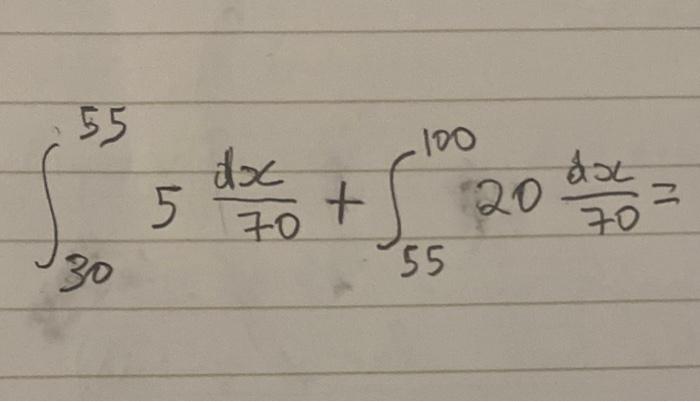 ∫₃₀⁵⁵ 5 dx/70 + ∫₅₅¹⁰⁰ 20 dx/70 =